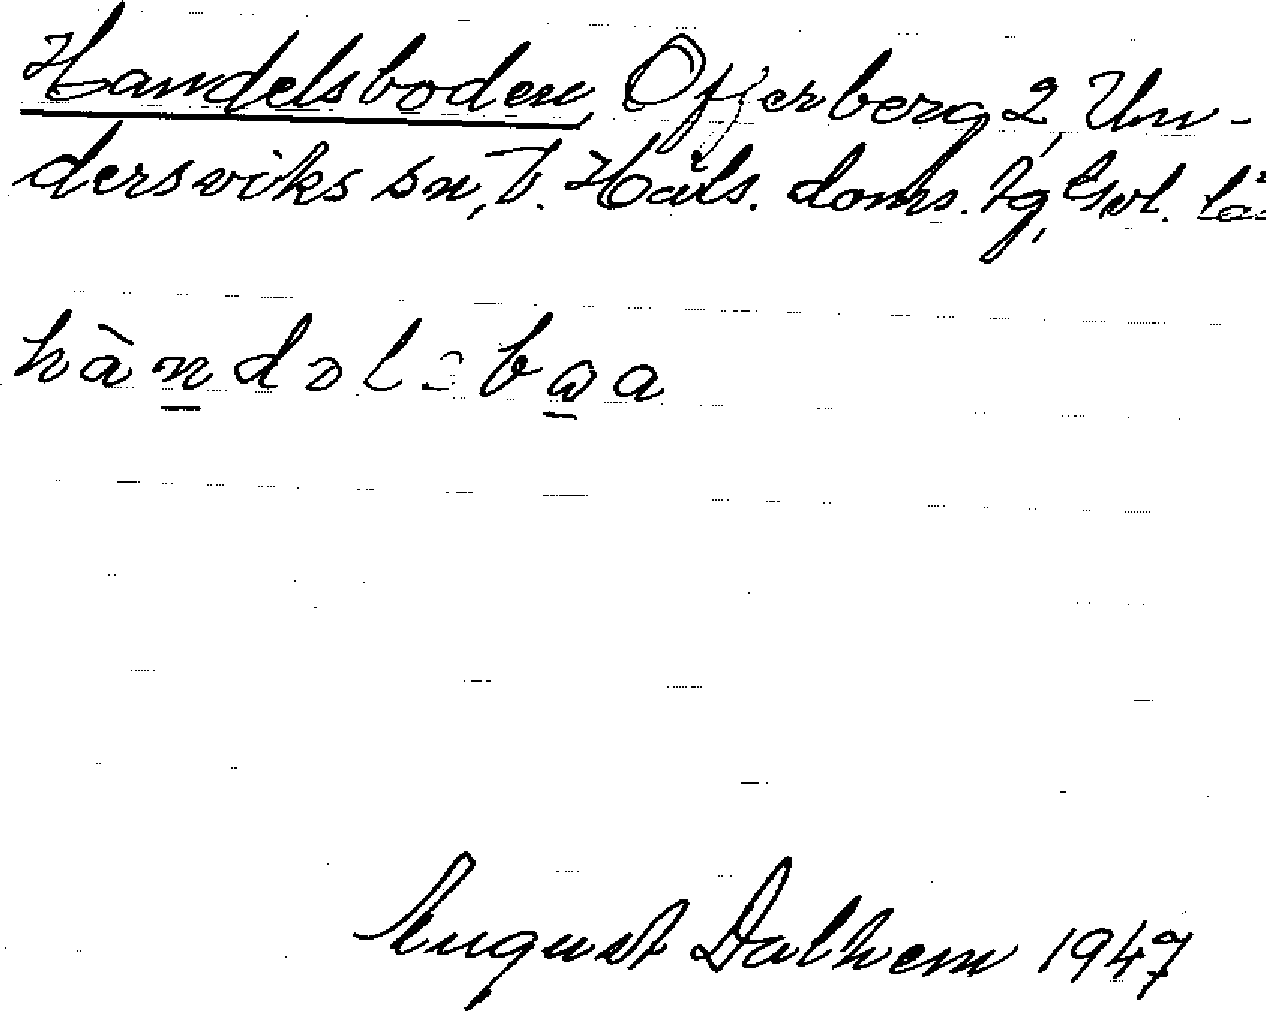 Handelsboden, Offerberg 2, Un-
dersviks sn, V. Häls. doms. tg, Gvl. lä
hàndəlsbọa
August Dalhem 1947